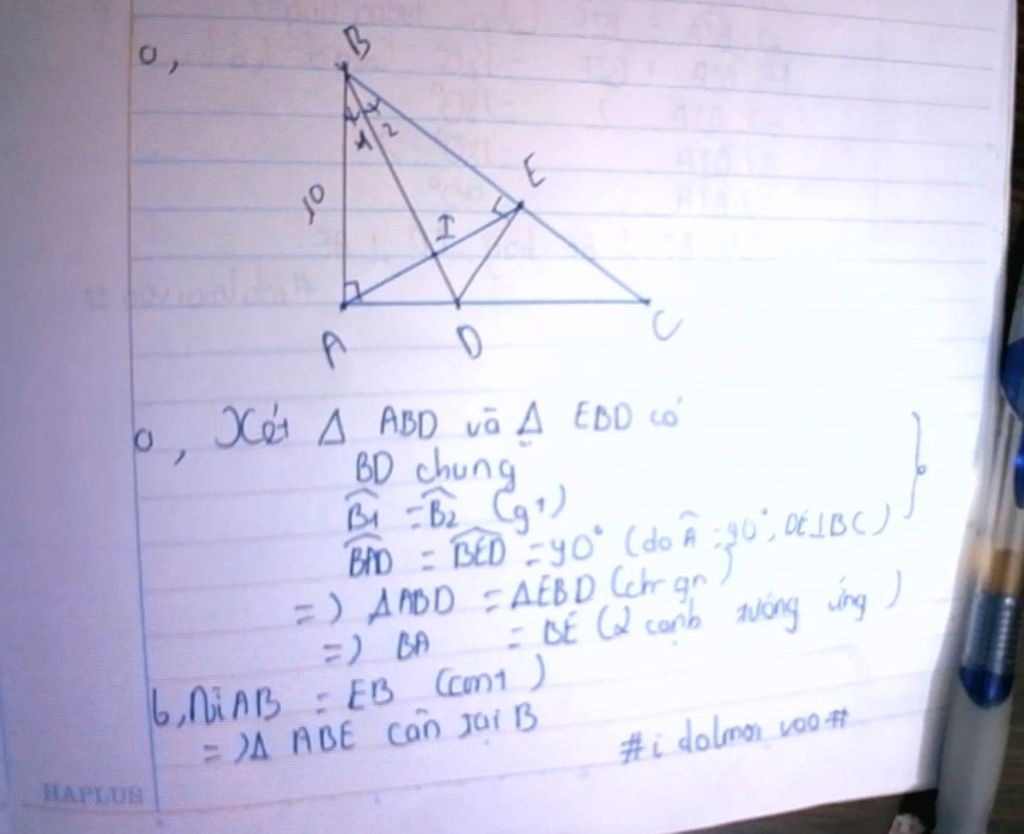 a,
B
1 2
10
E
I
A D C
a, Xét Δ ABD và Δ EBD có
BD chung
B̂1 = B̂2 (gt)
BAD = BED = 90° (do Â = 90°, DE⊥BC)
=) ΔABD = ΔEBD (ch gn)
=) BA = BE (2 cạnh tương ứng)
b, Vì AB = EB (cmt)
=) Δ ABE cân tại B
HAPLUS